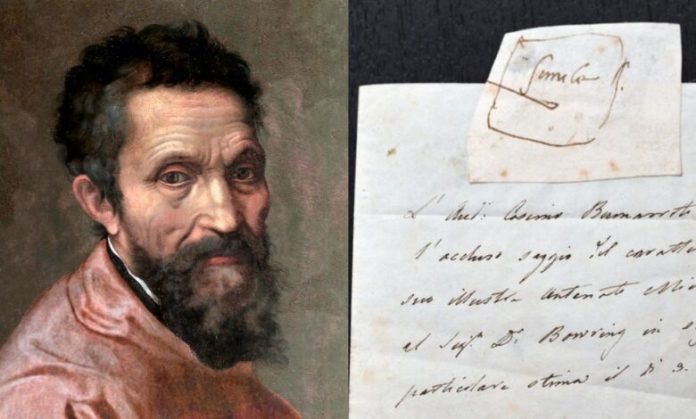 Simile
L' Avv. Cosimo Buonarroti
l'accluso saggio del caratte
suo illustre antenato Mic
al Sigr. Dr. Bowring in
particolare stima il dì 3.